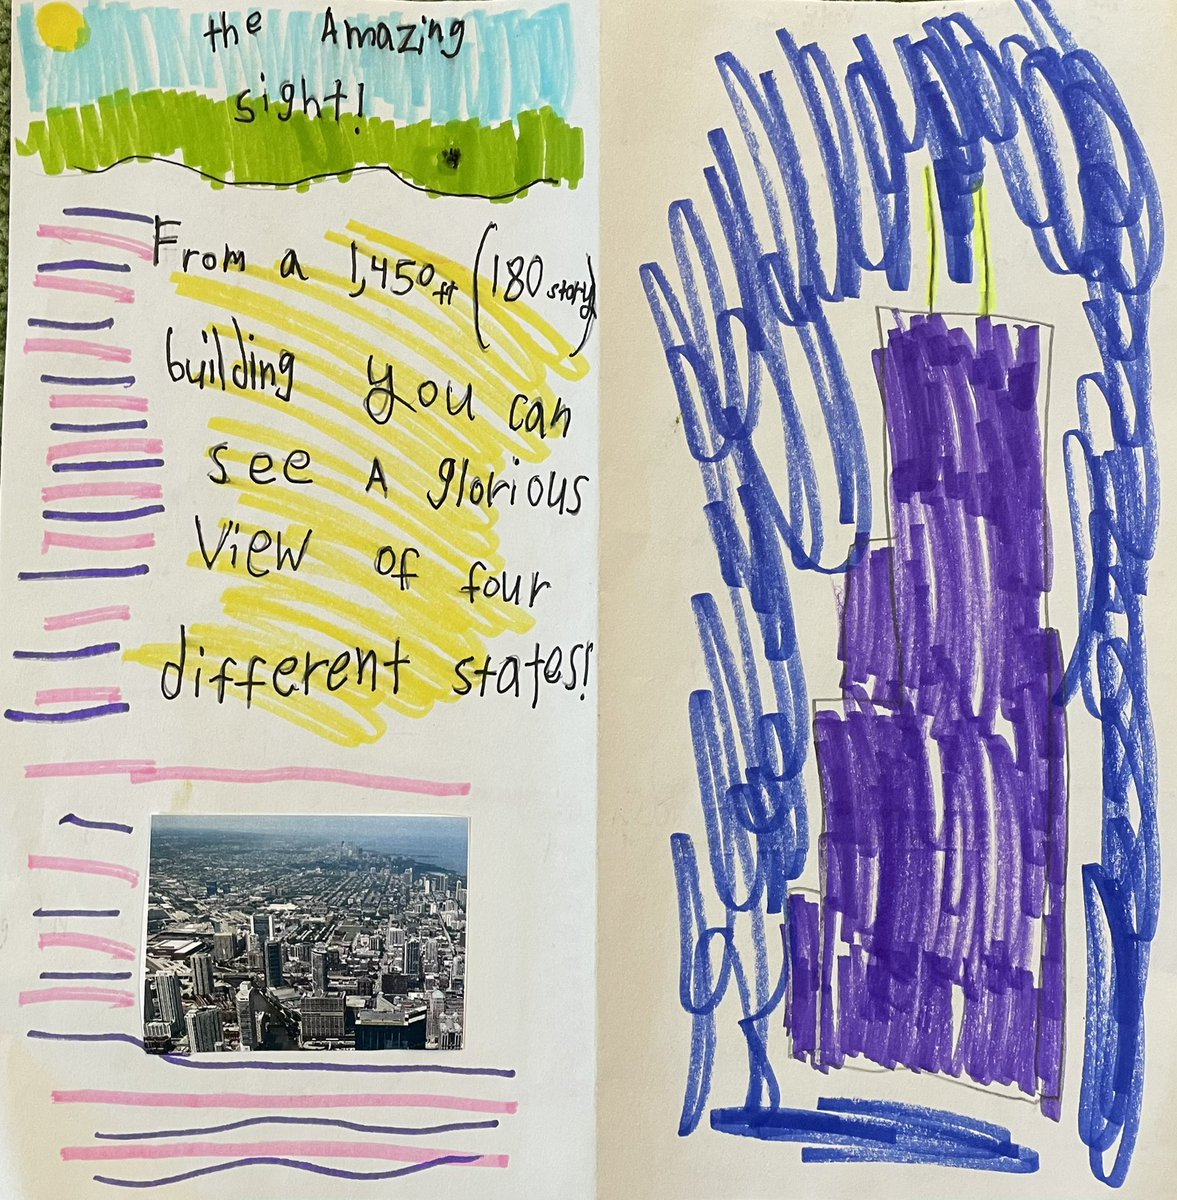 the Amazing
sight!
From a 1,450 ft (180 story)
building you can
see A glorious
View of four
different states!